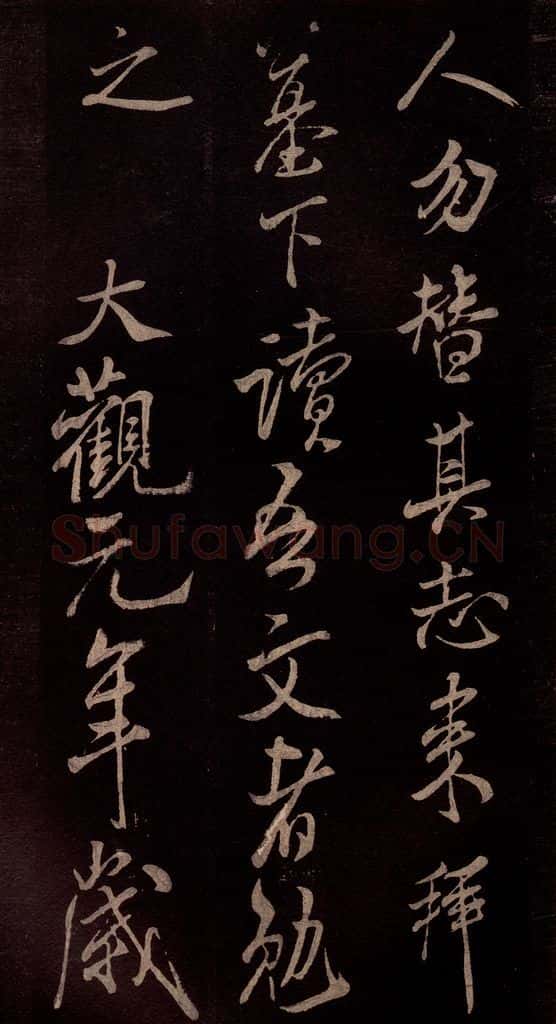 人勿替其志来拜
墓下讀吾文者勉
之 大觀元年歲
Shufawang.CN